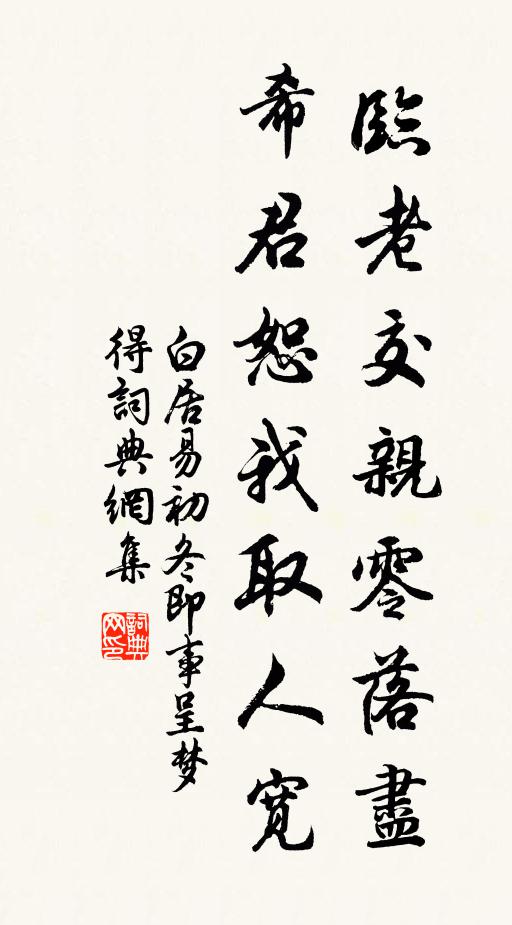 臨老交親零落盡
希君恕我取人寬
白居易初冬即事呈梦
得詞典網集
詞典
网印